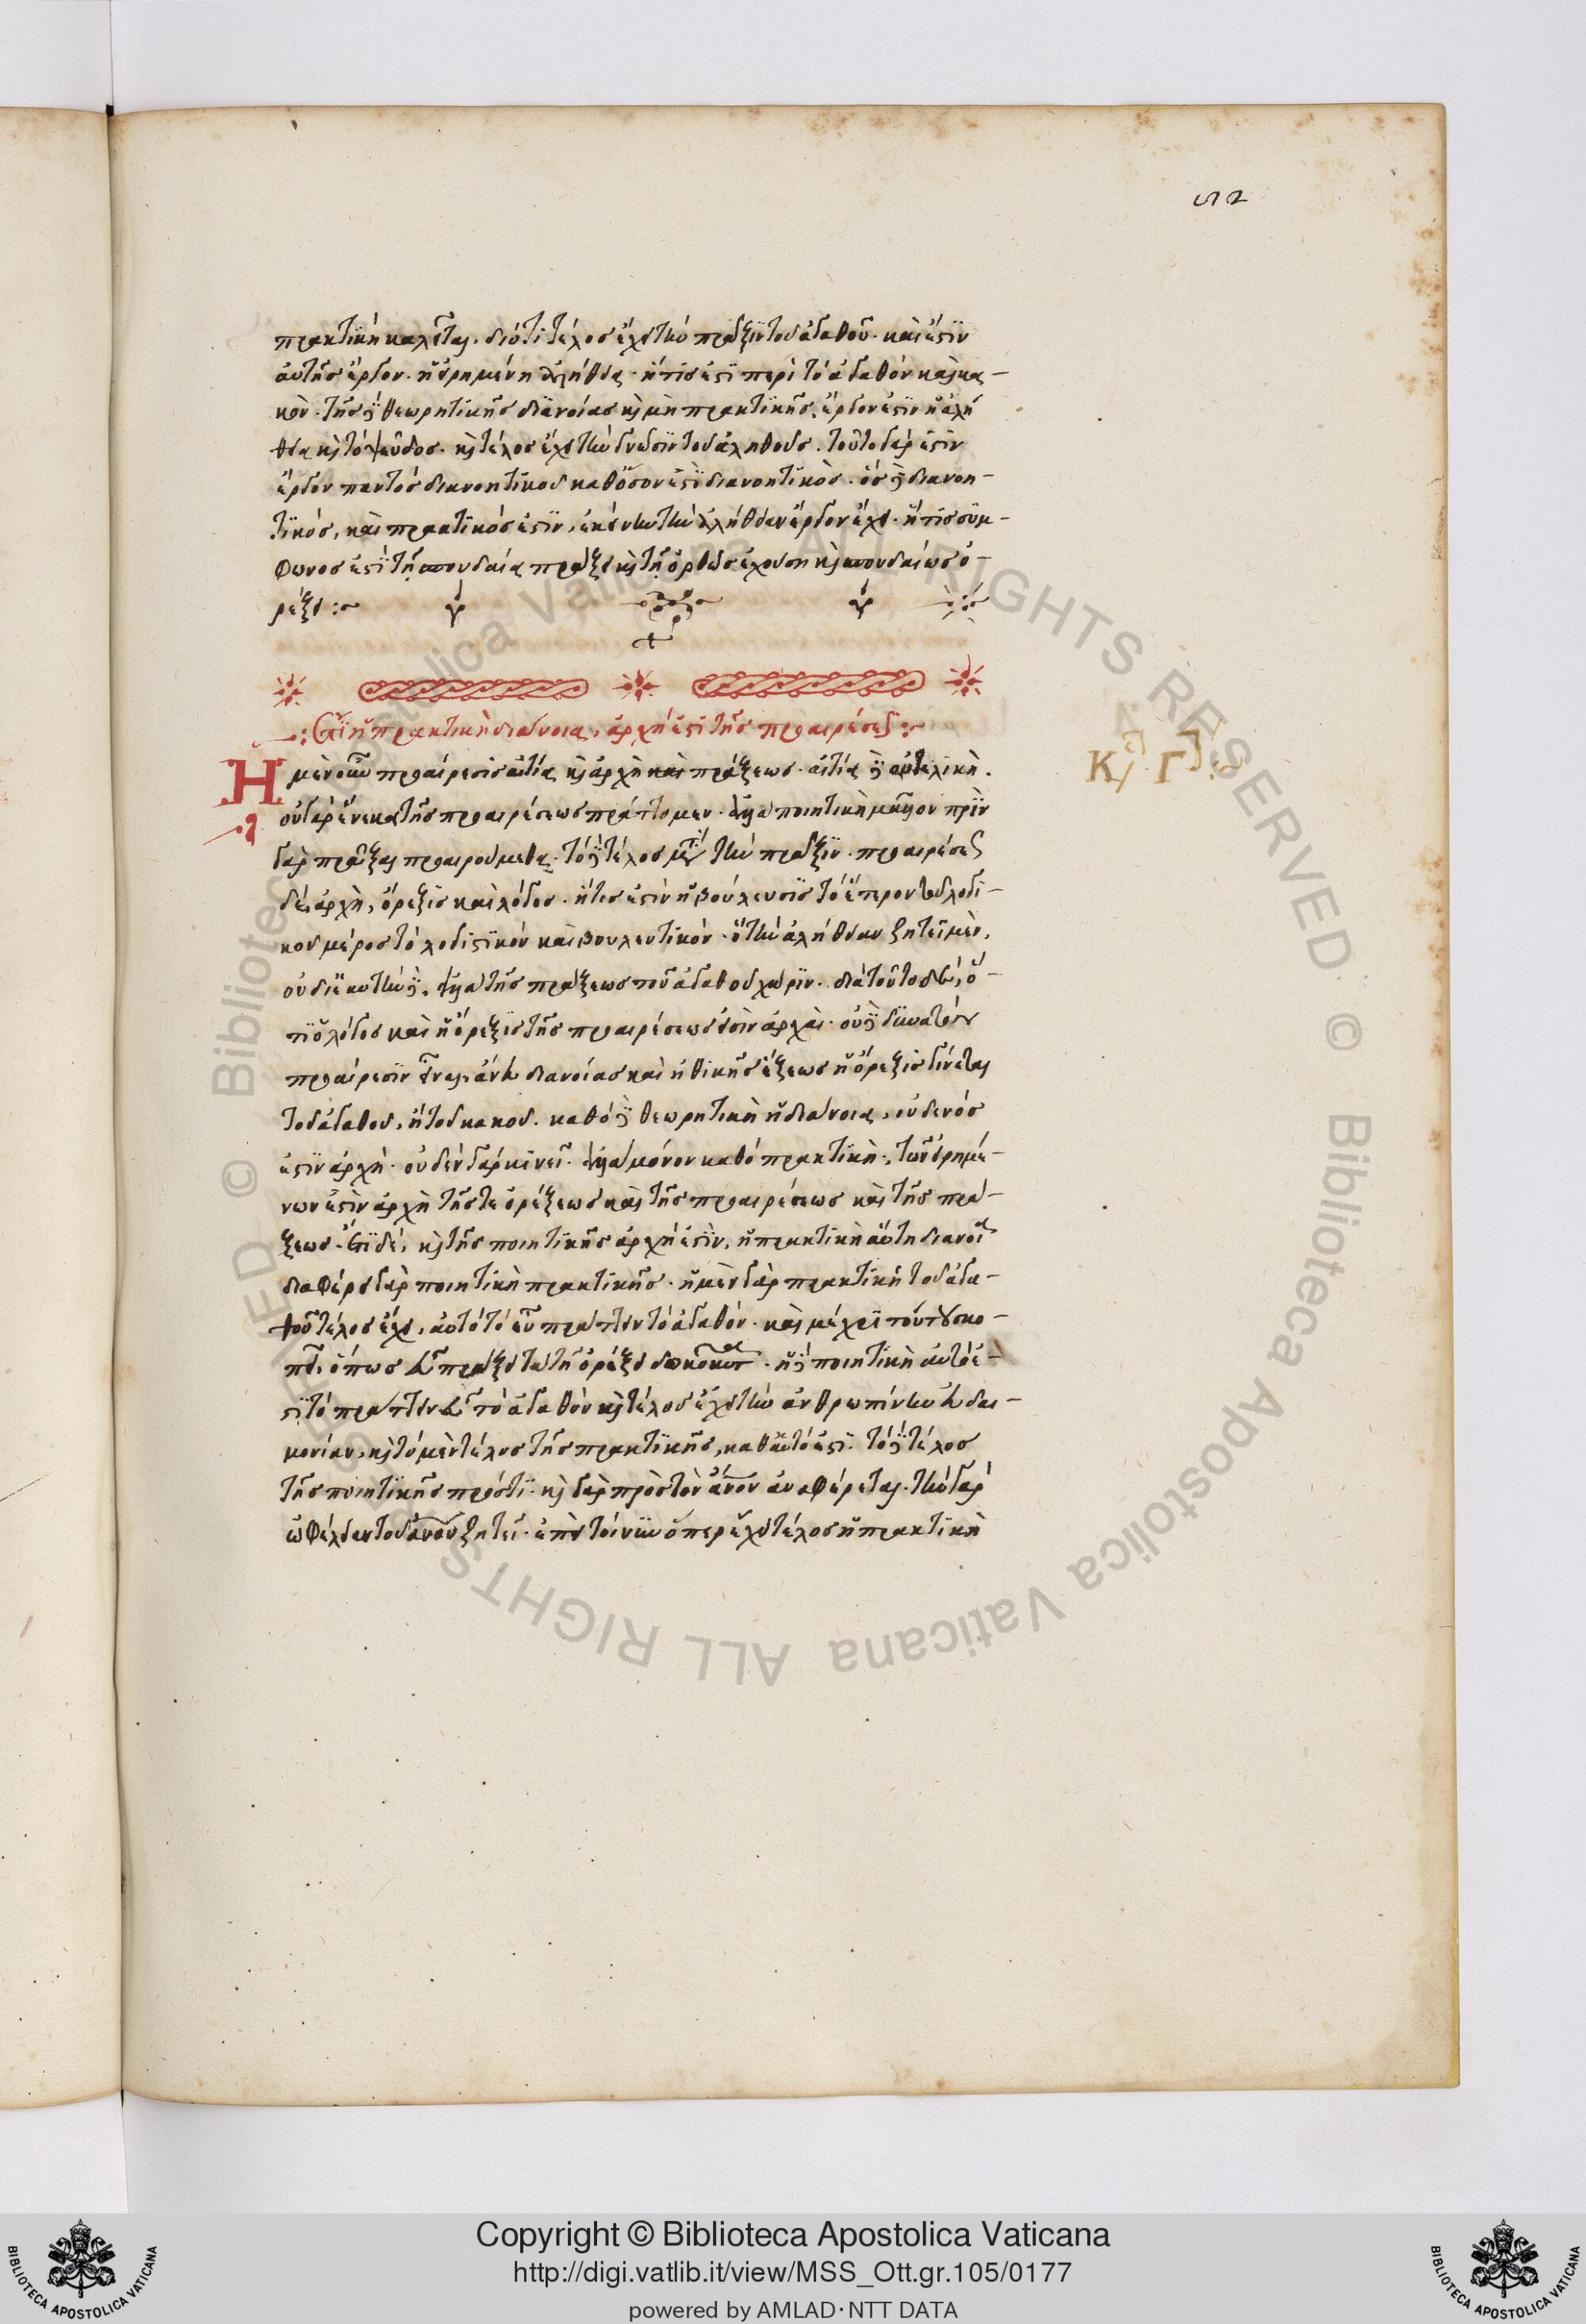 πρακτικὴ καλεῖται. διότι τέλος ἔχει τὴν πρᾶξιν τοῦ ἀγαθοῦ. καὶ ἔστιν
αὐτῆς ἔργον. ἡ εἰρημένη ἀλήθεια. ἥτις ἐστὶ περὶ τὸ ἀγαθὸν καὶ κα-
κόν. τῆς δὲ θεωρητικῆς διανοίας καὶ μὴ πρακτικῆς, ἔργον ἐστὶν ἡ ἀλή
θεια καὶ τὸ ψεῦδος. καὶ τέλος ἔχει τὴν γνῶσιν τοῦ ἀληθοῦς. τοῦτο γάρ ἐστιν
ἔργον παντὸς διανοητικοῦ καθ' ὅσον ἐστὶ διανοητικός. ὃς δὲ διανοη-
τικός, καὶ πρακτικός ἐστιν, ἐκείνην τὴν ἀλήθειαν ἔργον ἔχει. ἥτις σύμ-
φωνος ἐστὶ τῇ σπουδαίᾳ πράξει καὶ τῇ ὀρθῶς ἐχούσῃ καὶ σπουδαίως ὀ-
ρέξει :~
Ὅτι ἡ πρακτικὴ διάνοια, ἀρχή ἐστι τῆς προαιρέσεως :~
Ἡ μὲν οὖν προαίρεσις αἰτία καὶ ἀρχὴ καὶ πράξεως. αἰτία δὲ οὐ τελική.
οὐ γὰρ ἕνεκα τῆς προαιρέσεως πράττομεν. ἀλλὰ ποιητικὴ μᾶλλον πρὶν
γὰρ πρᾶξαι προαιρούμεθα. τὸ δὲ τέλος μετὰ τὴν πρᾶξιν. προαιρέσεως
δέ, ἀρχή, ὄρεξις καὶ λόγος. ἥτις ἐστὶν ἡ βούλευσις τὸ ἕτερον τοῦ λογι-
κοῦ μέρος τὸ λογιστικὸν καὶ βουλευτικόν. ὃ τὴν ἀλήθειαν ζητεῖ μέν,
οὐ δι' αὐτὴν δέ, ἀλλὰ τῆς πράξεως τοῦ ἀγαθοῦ χάριν. διὰ τοῦτο δέ, ὅ-
τι ὁ λόγος καὶ ἡ ὄρεξις τῆς προαιρέσεως εἰσὶν ἀρχαί. οὐ δὲ δυνατὸν
προαίρεσιν εἶναι. ἄνευ διανοίας καὶ ἠθικῆς ἕξεως ἡ ὄρεξις γίνεται
τοῦ ἀγαθοῦ, ἢ τοῦ κακοῦ. καθὸ δὲ θεωρητικὴ ἡ διάνοια, οὐδενός
ἐστιν ἀρχή. οὐδὲν γὰρ κινεῖ. ἀλλὰ μόνον καθὸ πρακτική. τῶν εἰρημέ-
νων ἐστὶν ἀρχὴ τῆς τε ὀρέξεως καὶ τῆς προαιρέσεως καὶ τῆς πρά-
ξεως. ἔτι δέ, καὶ τῆς ποιητικῆς ἀρχή ἐστιν, ἡ πρακτικὴ αὕτη διάνοια
διαφέρει γὰρ ποιητικὴ πρακτικῆς. ἡ μὲν γὰρ πρακτικὴ τοῦ ἀγα-
θοῦ τέλος ἔχει, αὐτὸ τὸ εὖ πράττειν τὸ ἀγαθόν. καὶ μέχρι τούτου σκο-
πεῖ, ὅπως εὖ πράξει τῇ ὀρέξει . ἡ δὲ ποιητικὴ αὐτὸ ἐ-
στι τὸ πράττειν εὖ τὸ ἀγαθὸν καὶ τέλος ἔχει τὴν ἀνθρωπίνην εὐδαι-
μονίαν, καὶ τὸ μὲν τέλος τῆς πρακτικῆς, καθ' αὑτό ἐστι. τὸ δὲ τέλος
τῆς ποιητικῆς πρός τι. καὶ γὰρ πρὸς τὸν ἄνον ἀναφέρεται. τὴν γὰρ
ὠφέλειαν τοῦ ἀνου ζητεῖ. ἐπεὶ τοίνυν ὅπερ ἔχει τέλος ἡ πρακτικὴ
Copyright © Biblioteca Apostolica Vaticana
http://digi.vatlib.it/view/MSS_Ott.gr.105/0177
powered by AMLAD·NTT DATA